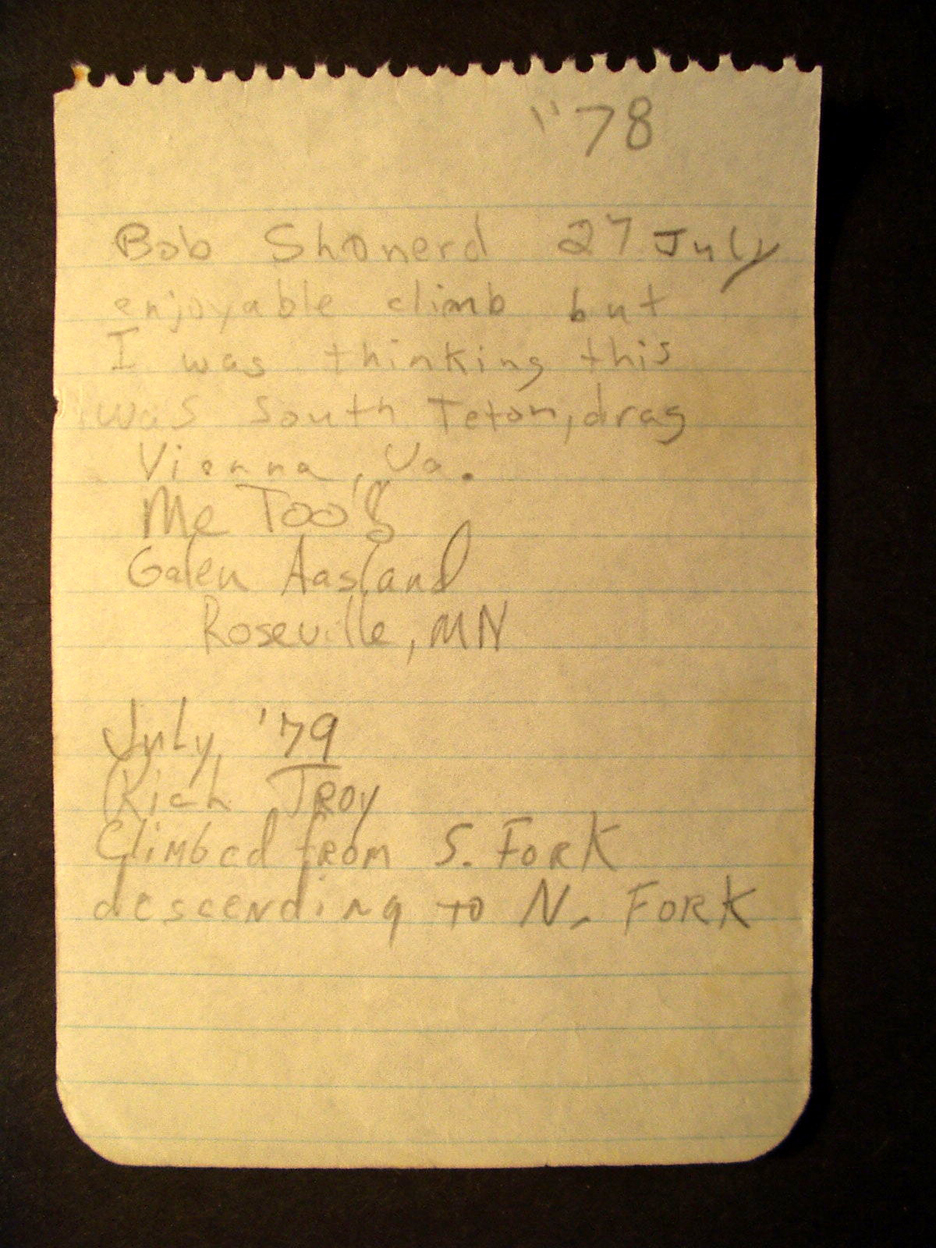 "78
Bob Shonerd 27 July
enjoyable climb but
I was thinking this
was South Teton, drag
Vienna, Va.
Me Too!
Galen Aasland
Roseville, MN
July, '79
Rich Troy
Climbed from S. Fork
descending to N. FORK